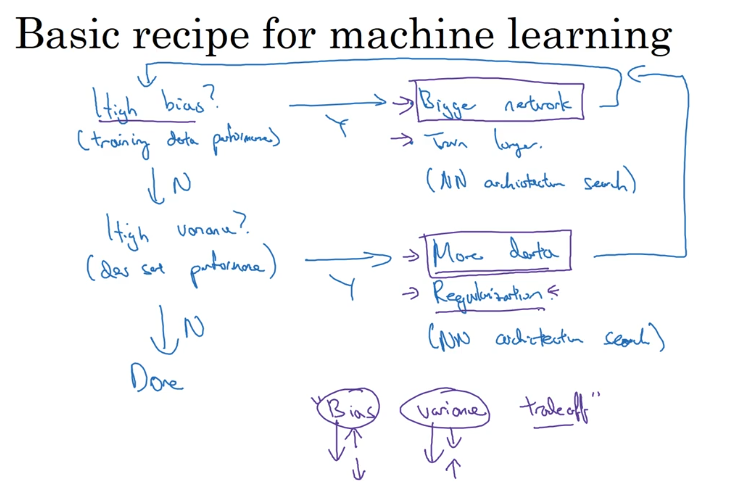 Basic recipe for machine learning
High bias?
(training data performance)
Y
Bigger network
Train longer.
(NN architecture search)
N
High variance?
(dev set performance)
Y
More data
Regularization
(NN architecture search)
N
Done
"Bias variance tradeoff"